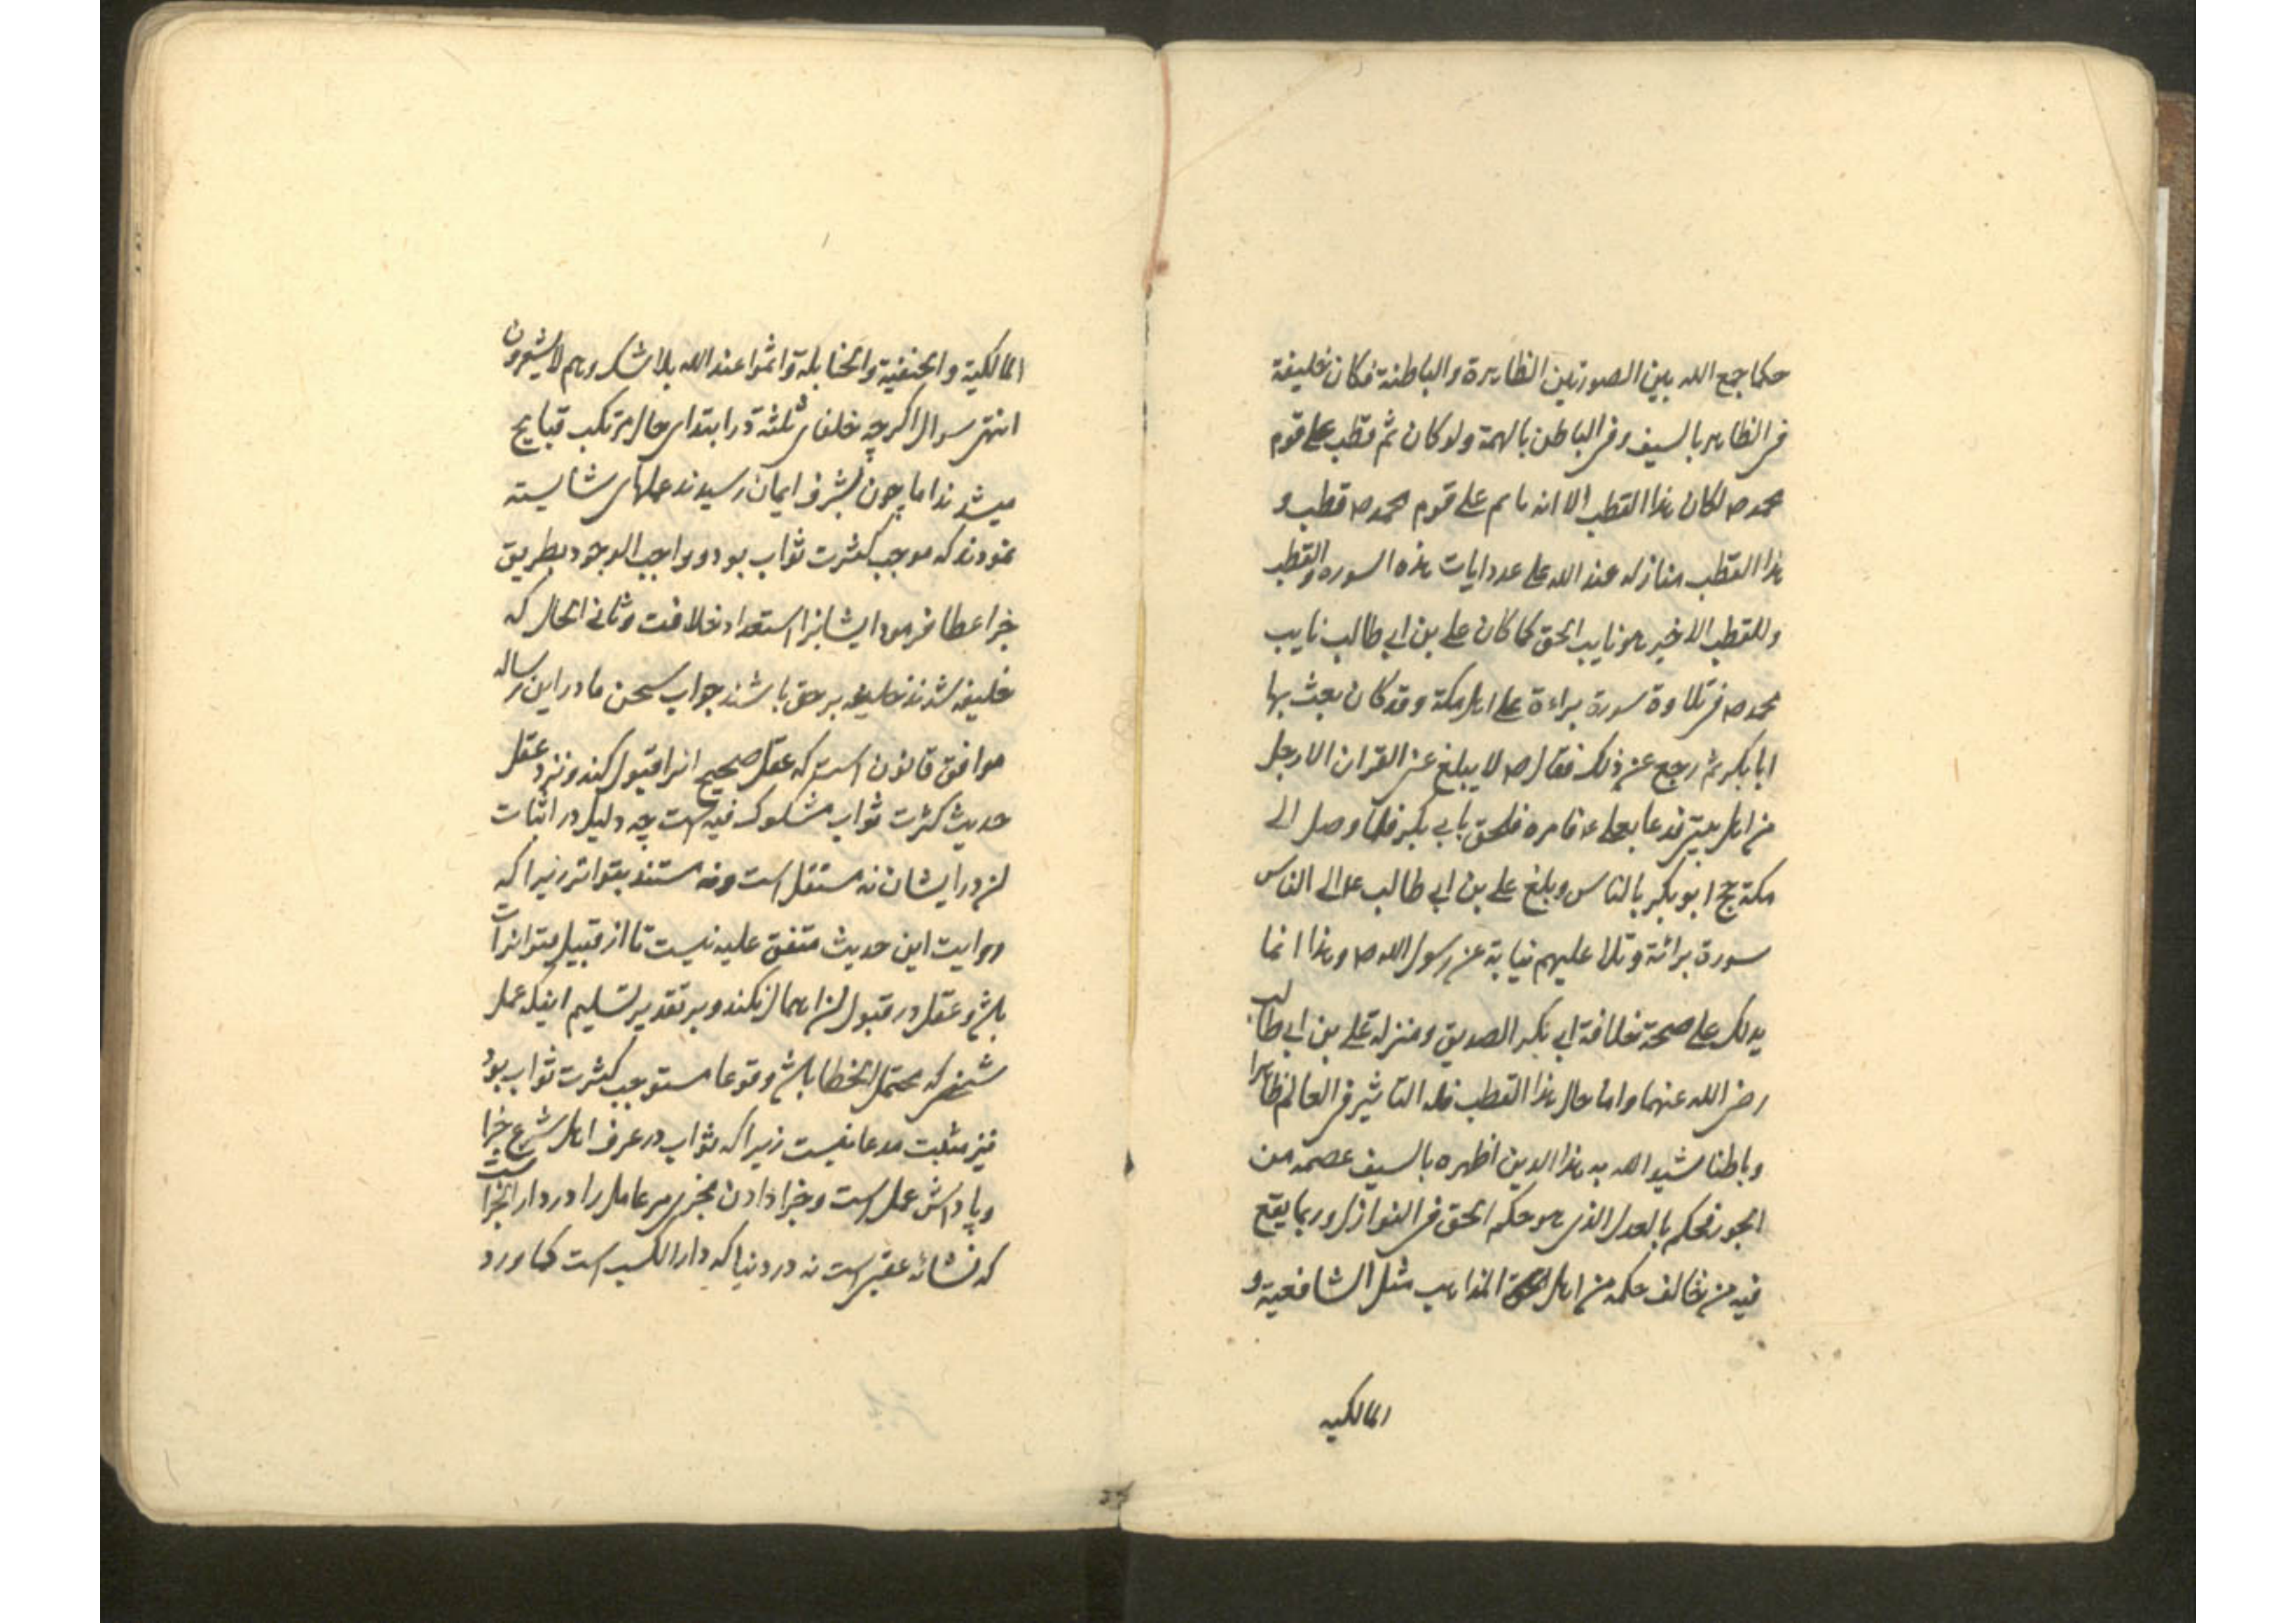 حکما جمع الله بین الصورتین الظاهرة والباطنة فکان خلیفة
فی الظاهر بالسیف وفی الباطن بالهمة ولو کان ثم قطب علی قوم
محمد ص لکان هذا القطب الا انه ما ثم علی قوم محمد ص قطب و
هذا القطب منازله عند الله علی عدد ایات هذه السوره والقطب
وللقطب الاخیر هو نایب الحق کما کان علی بن ابی طالب نایب
محمد ص فی تلاوة سورة براءة علی اهل مکة وقد کان بعث بها
ابا بکر ثم رجع عن ذلک فقال ص لا یبلغ عنی القران الا رجل
من اهل بیتی فدعا بعلی ع فامره فلحق بابی بکر فلما وصل الی
مکة حج ابو بکر بالناس وبلغ علی بن ابی طالب ع الی الناس
سورة برائة وتلا علیهم نیابة عن رسول الله ص وهذا انما
یدلک علی صحة خلافة ابی بکر الصدیق ومنزلة علی بن ابی طالب
رضی الله عنهما واما حال هذا القطب فله التاثیر فی العالم ظاهرا
وباطنا شید الله به هذا الدین اظهره بالسیف عصمه من
الجور فحکم بالعدل الذی هو حکم الحق فی النوازل وربما یقع
فیه من تخالف حکمه من اهل المذاهب مثل الشافعیة و
المالکیه
المالکیة والحنفیة والحنابلة وائمتوا عند الله بلا شک وهم لا یشعرون
انتهی سوال اگرچه خلفای ثلثة در ابتدای حال مرتکب قبایح
میشدند اما چون بشرف ایمان رسیدند عملهای شایسته
نمودند که موجب کثرت ثواب بود و واجب الوجود بطریق
جزا عطا فرمود ایشانرا استعداد خلافت وثانی الحال که
خلیفه شدند خلیفه بر حق باشند جواب سخن ما در این رساله
موافق قانون است که عقل صحیح انرا قبول کند ونزد عقل
حدیث کثرت ثواب مشکوک فیه است چه دلیل در اثبات
ان در ایشان نه مستقل است ونه مستند بتواتر زیرا که
روایت این حدیث متفق علیه نیست تا از قبیل متواترات
باشد وعقل در قبول ان اهمال نکند وبر تقدیر تسلیم اینکه عمل
شخصی که محتمل الخطا باشد وقوعا مستوجب کثرت ثواب بود
نیز مثبت مدعا نیست زیرا که ثواب در عرف اهل شرع جزا
وپاداش عمل است وجزا دادن مجزی مر عامل را در دار الجزاست
که نشائه عقبی است نه در دنیا که دار الکسب است کما ورد